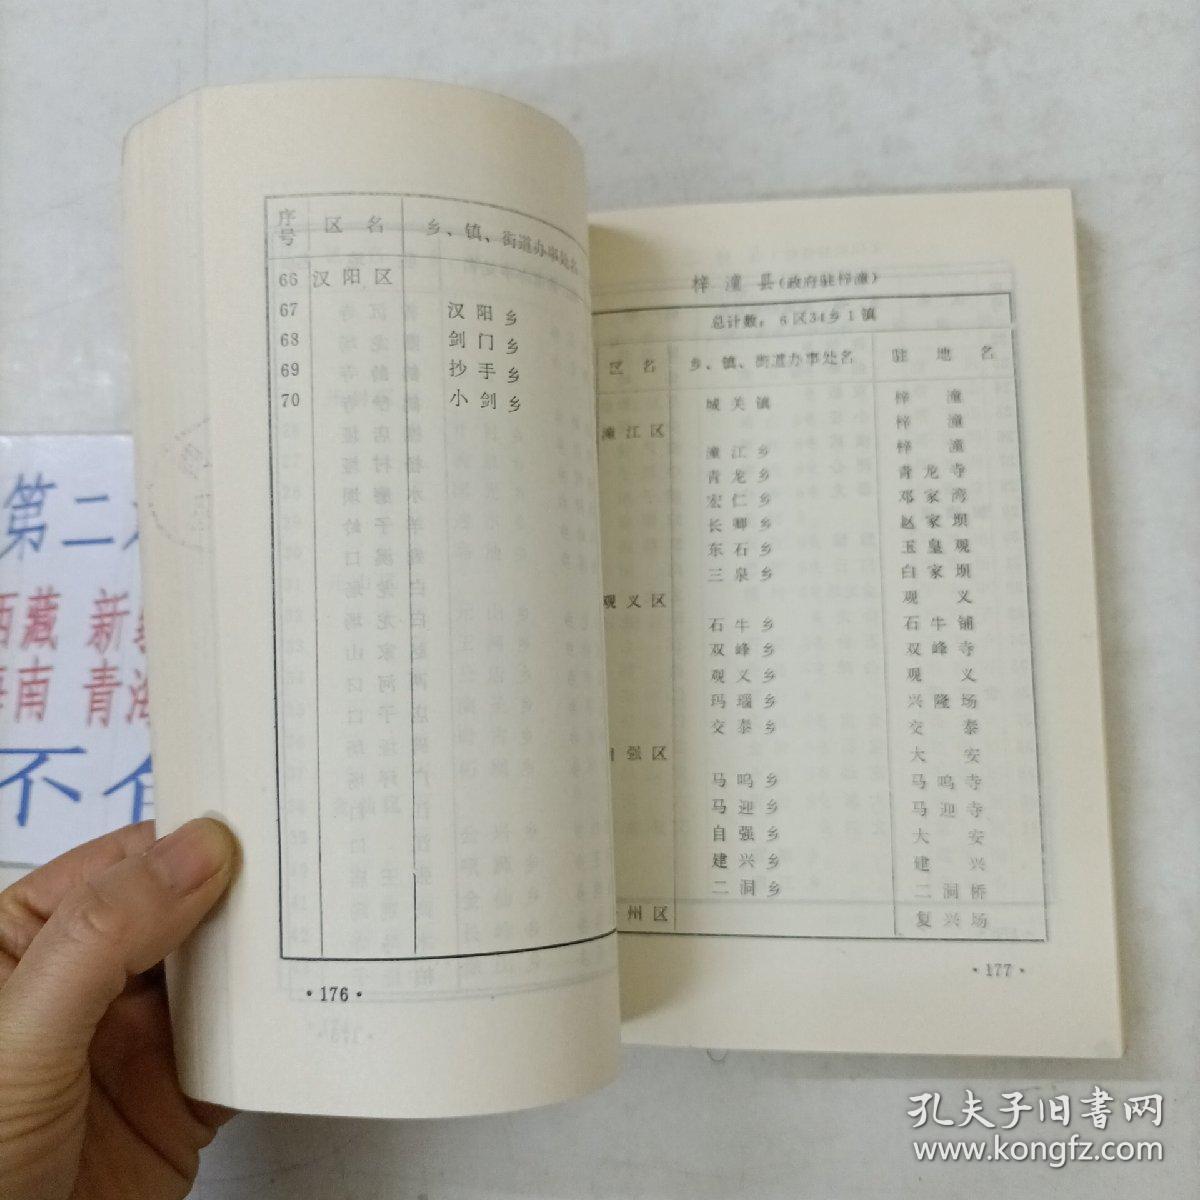 序号 区名 乡、镇、街道办事处名
66 汉阳区
67 汉阳乡
68 剑门乡
69 抄手乡
70 小剑乡
·176·
梓潼县(政府驻梓潼)
总计数：6区34乡1镇
区名 乡、镇、街道办事处名 驻地名
城关镇 梓潼
潼江区 梓潼
潼江乡 梓潼
青龙乡 青龙寺
宏仁乡 邓家湾
长卿乡 赵家坝
东石乡 玉皇观
三泉乡 白家坝
观义区 观义
石牛乡 石牛铺
双峰乡 双峰寺
观义乡 观义
玛瑙乡 兴隆场
交泰乡 交泰
自强区 大安
马鸣乡 马鸣寺
马迎乡 马迎寺
自强乡 大安
建兴乡 建兴
二洞乡 二洞桥
州区 复兴场
·177·
第二
西藏 新
海南 青海
不
孔夫子旧书网
www.kongfz.com